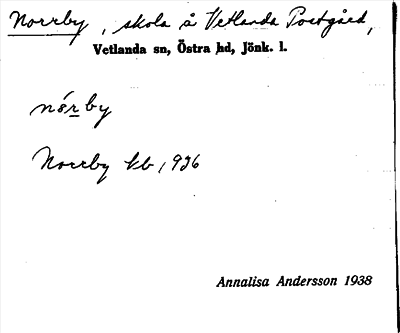 Norrby, skola å Vetlanda Postgård,
Vetlanda sn, Östra hd, Jönk. l.
nórby
Norrby kb 1926
Annalisa Andersson 1938